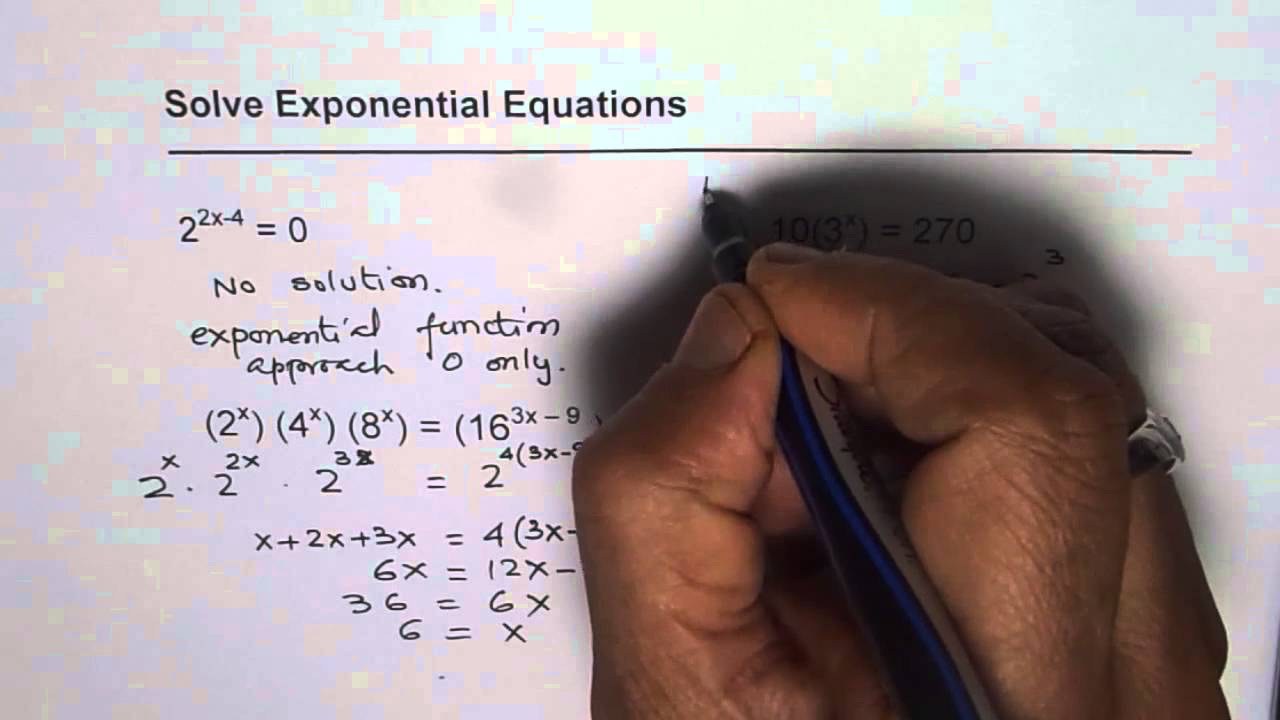 Solve Exponential Equations
2^{2x-4} = 0
No solution.
exponential function
approach 0 only.
(2^x) (4^x) (8^x) = (16^{3x - 9}
2^x . 2^{2x} . 2^{3x} = 2^{4(3x-
x+2x+3x = 4(3x-
6x = 12x-
36 = 6x
6 = x
10(3^x) = 270
3